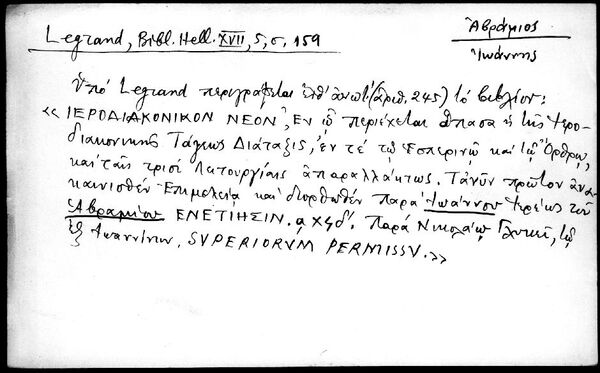 Legrand, Bibl. Hell. XVII, 5, σ. 159
Ἀβράμιος
Ἰωάννης
Ὑπό Legrand περιγράφεται (ἀριθ. 245) τό βιβλίον:
«ΙΕΡΟΔΙΑΚΟΝΙΚΟΝ ΝΕΟΝ, ἐν ᾧ περιέχεται ἅπασα ἡ τῆς Ἱερο-
διακονικῆς Τάξεως Διάταξις, ἔν τέ τῷ Ἑσπερινῷ καί τῷ Ὄρθρῳ,
καί ταῖς τρισί Λειτουργίαις ἀπαραλλάκτως. Τανῦν πρῶτον ἀνα-
καινισθέν Ἐπιμελείᾳ καί διορθωθέν παρά Ἰωάννου Ἱερέως τοῦ
Ἀβραμίου ΕΝΕΤΙΗΣΙΝ. αχϟδ΄. Παρά Νικολάῳ Γλυκεῖ, τῷ
ἐξ Ἰωαννίνων. SVPERIORVM PERMISSV.»